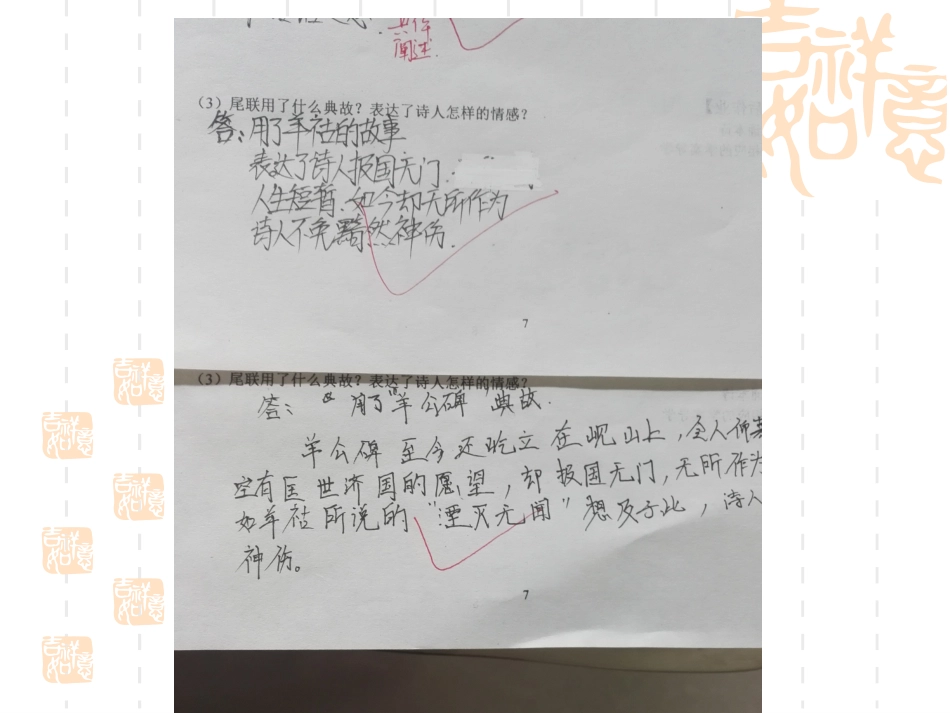 具体
阐述.
(3)尾联用了什么典故？表达了诗人怎样的情感？
答：用了羊祜的故事
表达了诗人报国无门.
人生短暂.如今却无所作为
诗人不免黯然神伤.
7
(3)尾联用了什么典故？表达了诗人怎样的情感？
答： 用了“羊公碑”典故.
羊公碑至今还屹立在岘山上，令人佩
空有匡世济国的愿望，却报国无门，无所作为
如羊祜所说的“湮灭无闻”想及于此，诗人
神伤。
7
吉祥如意
吉祥如意
吉祥如意
吉祥如意
吉祥如意
吉祥如意
吉祥如意